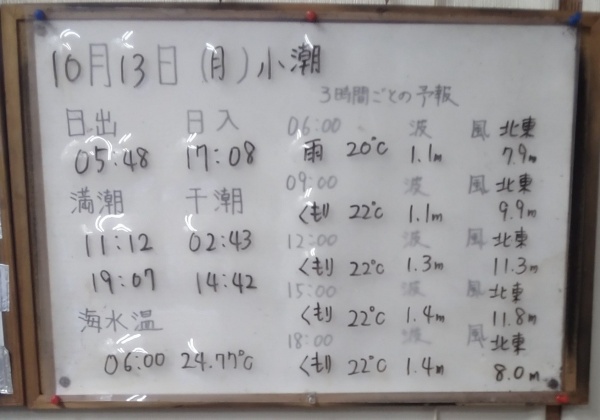 10月13日(月)小潮
日出 日入
05:48 17:08
満潮 干潮
11:12 02:43
19:07 14:42
海水温
06:00 24.77℃
3時間ごとの予報
06:00 波 風 北東
雨 20℃ 1.1m 7.9m
09:00 波 風 北東
くもり 22℃ 1.1m 9.9m
12:00 波 風 北東
くもり 22℃ 1.3m 11.3m
15:00 波 風 北東
くもり 22℃ 1.4m 11.8m
18:00 波 風 北東
くもり 22℃ 1.4m 8.0m